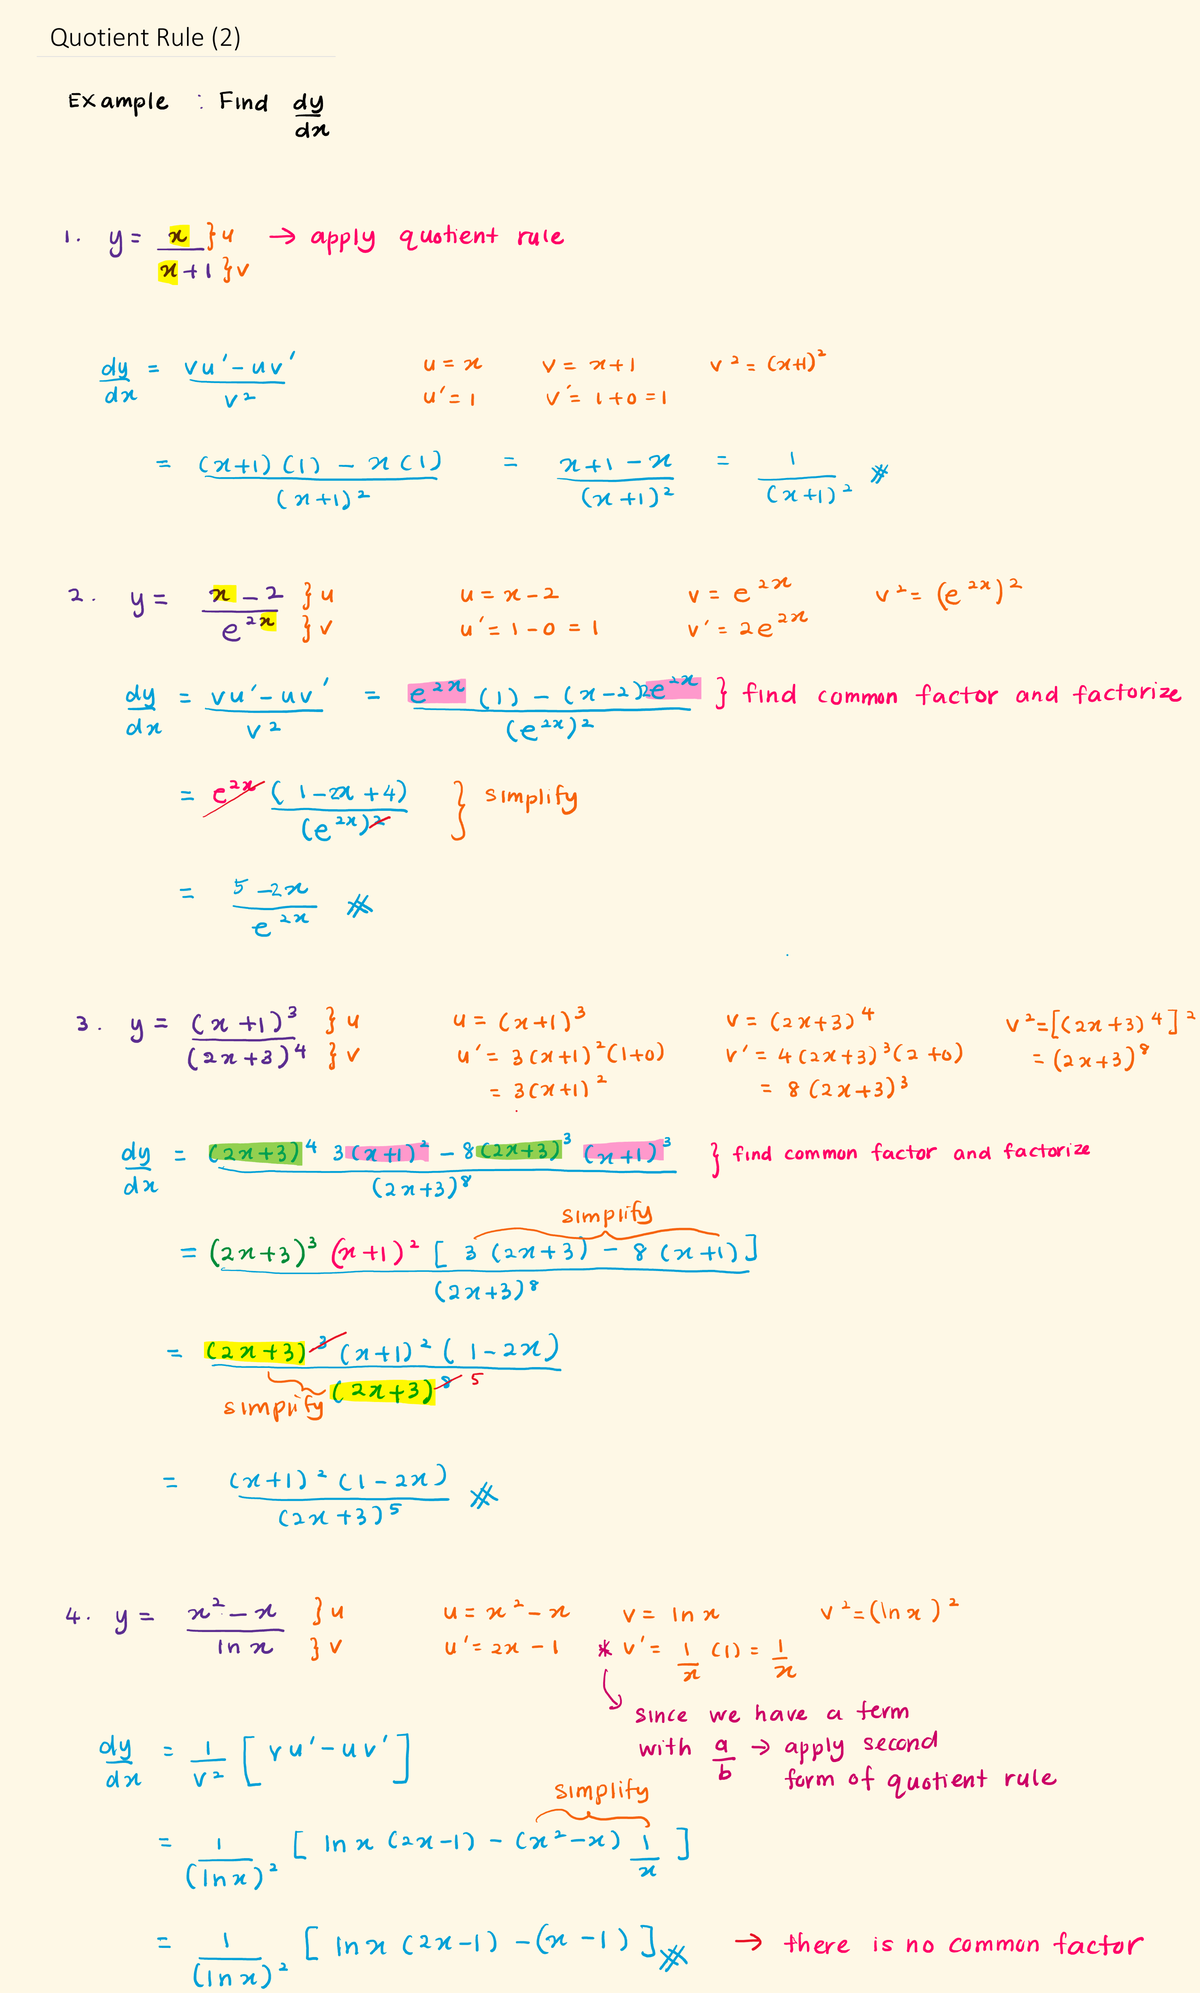 Quotient Rule (2)
Example : Find dy/dx
1. y = x/(x+1) }u }v → apply quotient rule
dy/dx = (vu' - uv')/v²   u = x   v = x+1   v² = (x+1)²
u' = 1   v' = 1+0 = 1
= ((x+1)(1) - x(1))/(x+1)² = (x+1-x)/(x+1)² = 1/(x+1)² #
2. y = (x-2)/e^(2x) }u }v   u = x-2   v = e^(2x)   v² = (e^(2x))²
u' = 1-0 = 1   v' = 2e^(2x)
dy/dx = (vu' - uv')/v² = (e^(2x)(1) - (x-2)2e^(2x))/(e^(2x))² } find common factor and factorize
= e^(2x)(1-2x+4)/(e^(2x))² } simplify
= (5-2x)/e^(2x) #
3. y = (x+1)³/(2x+3)⁴ }u }v   u = (x+1)³   v = (2x+3)⁴   v² = [(2x+3)⁴]²
u' = 3(x+1)²(1+0)   v' = 4(2x+3)³(2+0)   = (2x+3)⁸
= 3(x+1)²   = 8(2x+3)³
dy/dx = ((2x+3)⁴ 3(x+1)² - 8(2x+3)³ (x+1)³)/(2x+3)⁸ } find common factor and factorize
simplify
= (2x+3)³ (x+1)² [3(2x+3) - 8(x+1)]/(2x+3)⁸
= (2x+3)³ (x+1)² (1-2x)/(2x+3)⁸ 5
simplify
= (x+1)² (1-2x)/(2x+3)⁵ #
4. y = (x²-x)/ln x }u }v   u = x²-x   v = ln x   v² = (ln x)²
u' = 2x-1   * v' = 1/x (1) = 1/x
since we have a term
with a/b → apply second
form of quotient rule
dy/dx = 1/v² [vu' - uv']
simplify
= 1/(ln x)² [ln x (2x-1) - (x²-x) 1/x]
= 1/(ln x)² [ln x (2x-1) - (x-1)] # → there is no common factor